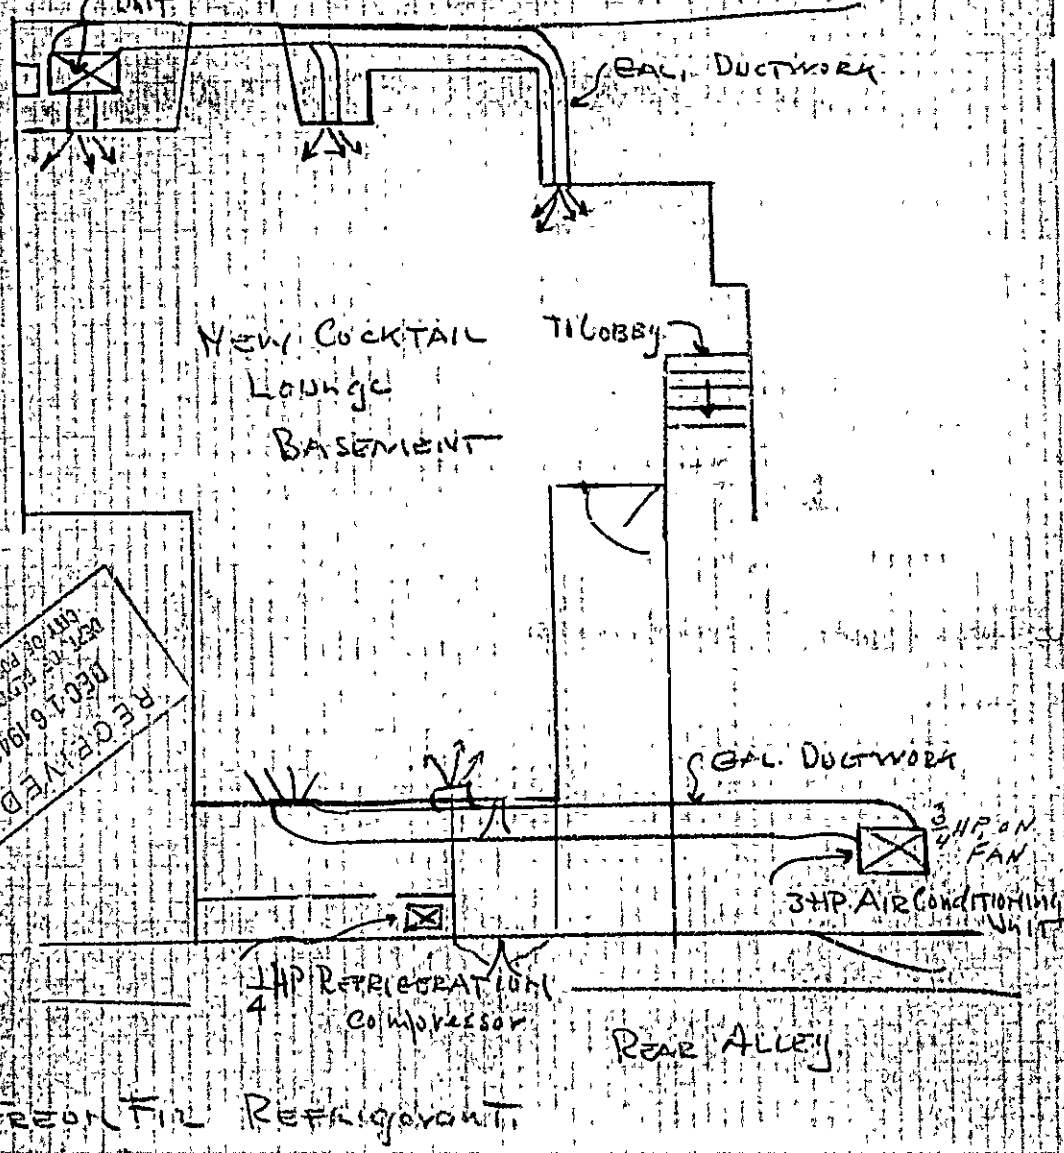 UNIT
GAL. DUCTWORK
NEW COCKTAIL
LOUNGE
BASEMENT
TO LOBBY
RECEIVED
DEC 16 194
DEPT. OF
CITY OF
GAL. DUCTWORK
3/4 HP. ON
FAN
3 HP AIR CONDITIONING
UNIT
1/4 HP REFRIGERATION
Compressor
REAR ALLEY
REON F12 REFRIGERANT